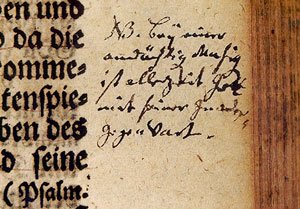 en und
da die
omme-
tenspie-
ben des
d seine
(Psalm-
NB. Bey einer
andächtig Musiq
ist allezeit Gott
mit seiner Gnaden
Gegenwart.